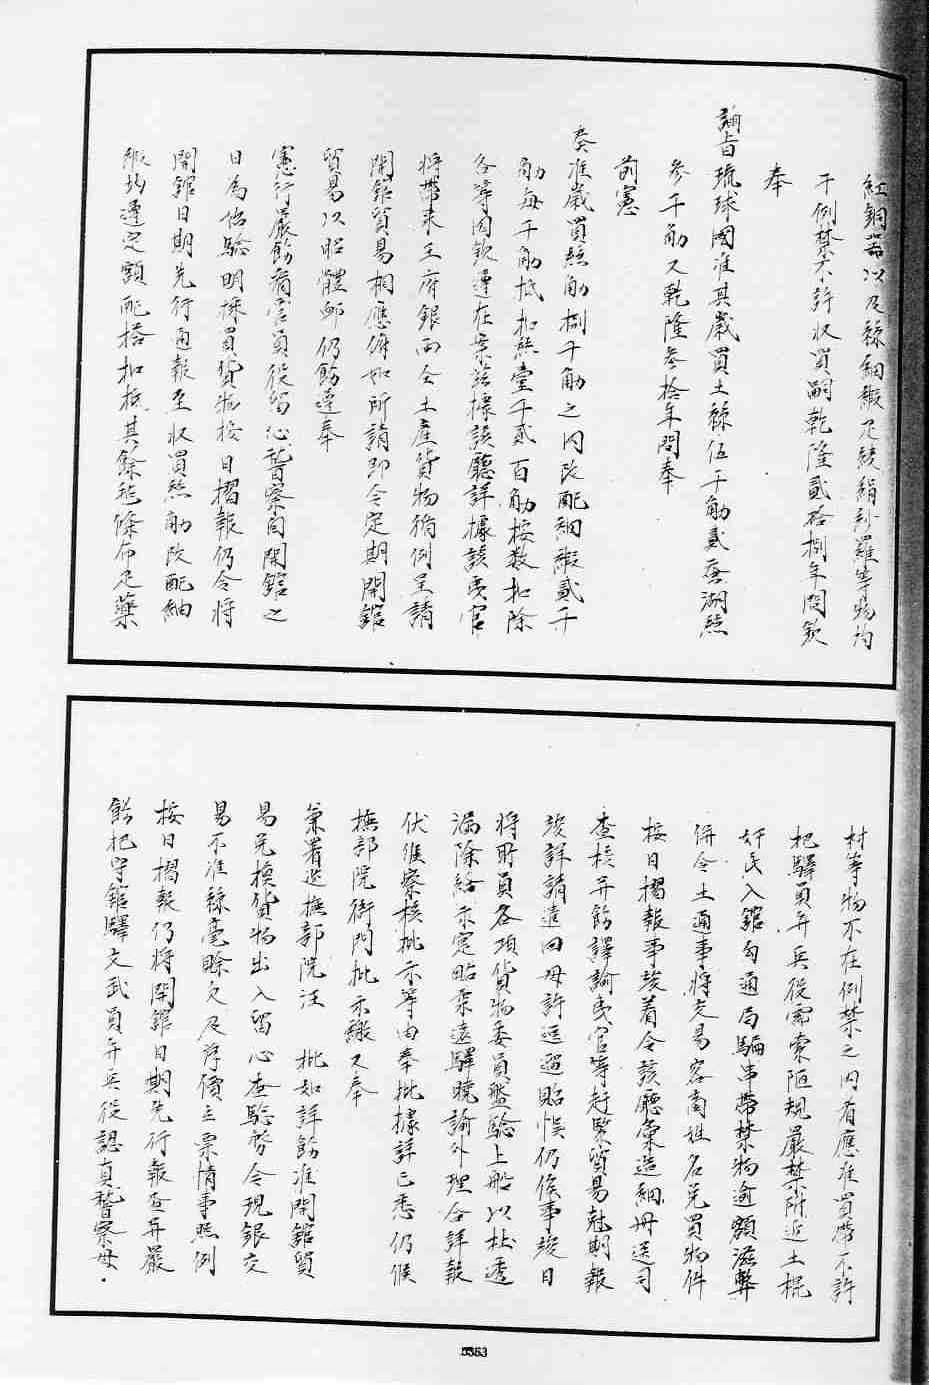 紅銅器以及絲綢緞疋綾絹紗羅等物均
干例禁不許收買嗣乾隆貳拾捌年間欽
奉
諭旨琉球國准其歲買土絲伍千觔貳蚕湖絲
參千觔又乾隆參拾年間奉
前憲
奏准歲買絲觔捌千觔之內改配綢緞貳千
觔每千觔抵扣絲壹千貳百觔按數扣除
各等因欽遵在案茲據該廳詳據該夷官
將帶來王府銀兩仝土產貨物循例呈請
開舘貿易相應俯如所請即令定期開舘
貿易以昭體卹仍飭遵奉
憲行嚴飭衛官員役留心訾察自開舘之
日為始驗明採買貨物按日摺報仍令將
開舘日期先行通報至收買絲觔改配紬
緞均遵定額配搭扣抵其餘毡條布疋藥
材等物不在例禁之內者應准買帶不許
把驛員弁兵役需索陋規嚴禁附近土棍
奸民入舘勾通局騙串帶禁物逾額滋弊
併令土通事將交易客商姓名兌買物件
按日摺報事竣着令該廳彙造細冊送司
查核并飭譯諭夷官等赶緊貿易尅期報
竣詳請遣回毋許逗遛貽悞仍俟事竣日
將所買各項貨物委員盤驗上船以杜透
漏除給示寔貼柔遠驛曉諭外理合詳報
伏候察核批示等由奉批據詳已悉仍候
撫部院衙門批示繳又奉
兼署巡撫部院汪　批如詳飭准開舘貿
易兌換貨物出入留心查驗務令現銀交
易不准絲毫賒欠及浮價立票情事照例
按日摺報仍將開舘日期先行報查并嚴
飭把守舘驛文武員弁兵役認真訾察毋
5353